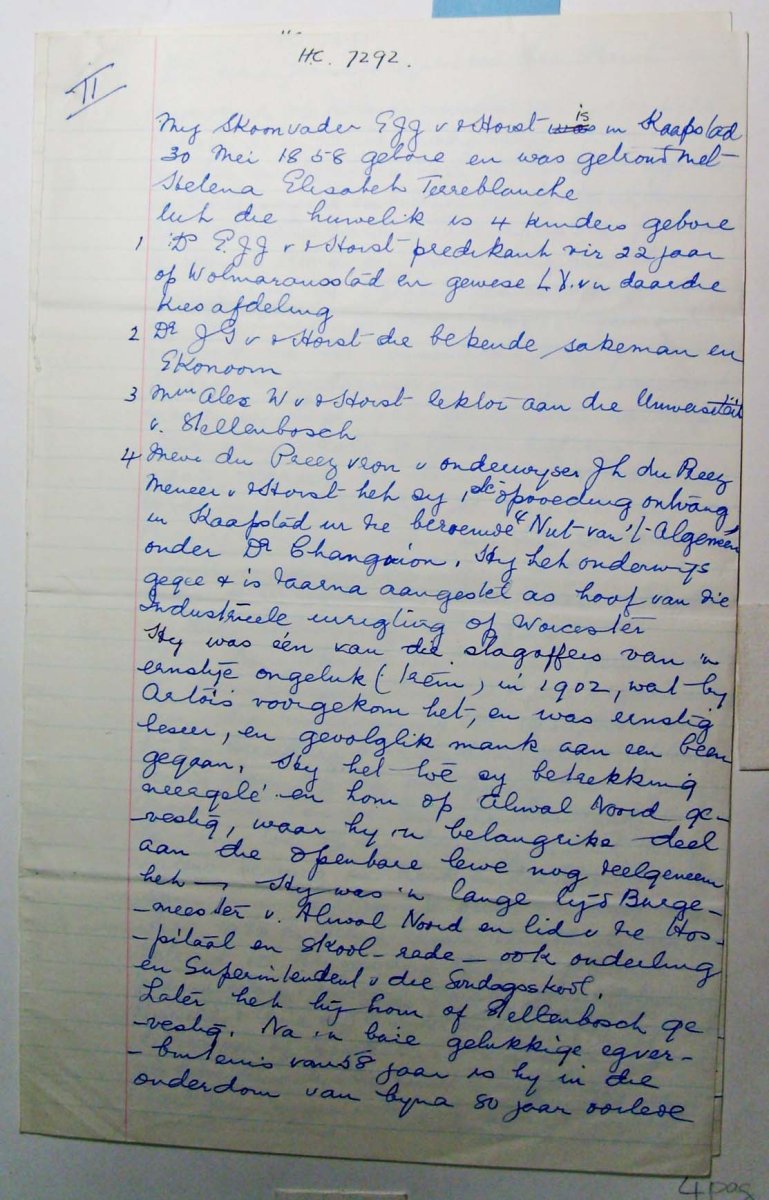 H.C. 7292.
II
My Skoonvader E J J v d Horst is in Kaapstad
30 Mei 1858 gebore en was getroud met
Helena Elisabeth Terreblanche
uit die huwelik is 4 kinders gebore
1 Ds E J J v d Horst predikant vir 22 jaar
op Wolmaransstad en gewese L.V. v n daardie
Kiesafdeling
2 Dr J G v d Horst die bekende sakeman en
Ekonoom
3 Mnr Alex W v d Horst lektor aan die Universiteit
v. Stellenbosch
4 Mevr du Preez vrou v onderwyser J h du Preez
Meneer v d Horst het sy opvoeding ontvang
in Kaapstad in die beroemde "Nut van 't Algemeen"
onder Dr Changuion. Hy het onderwys
gegee & is daarna aangestel as hoof van die
Industrieele inrigting op Worcester
Hy was één van die slagoffers van 'n
ernstige ongeluk (trein) in 1902, wat by
Artois voorgekom het, en was ernstig
beseer, en gevolglik mank aan een been
gegaan. Hy het toe sy betrekking
neergelê en hom op Aliwal Noord ge-
-vestig, waar hy 'n belangrike deel
aan die openbare lewe nog deelgeneem
het — Hy was 'n lange tyd Burge-
-meester v. Aliwal Noord en lid v die Hos-
-pitaal en Skool-rade — ook ouderling
en Superintendent v die Sondagsskool.
Later het hy hom op Stellenbosch ge
-vestig. Na 'n baie gelukkige egver-
-bintenis van 58 jaar is hy in die
ouderdom van byna 80 jaar oorlede